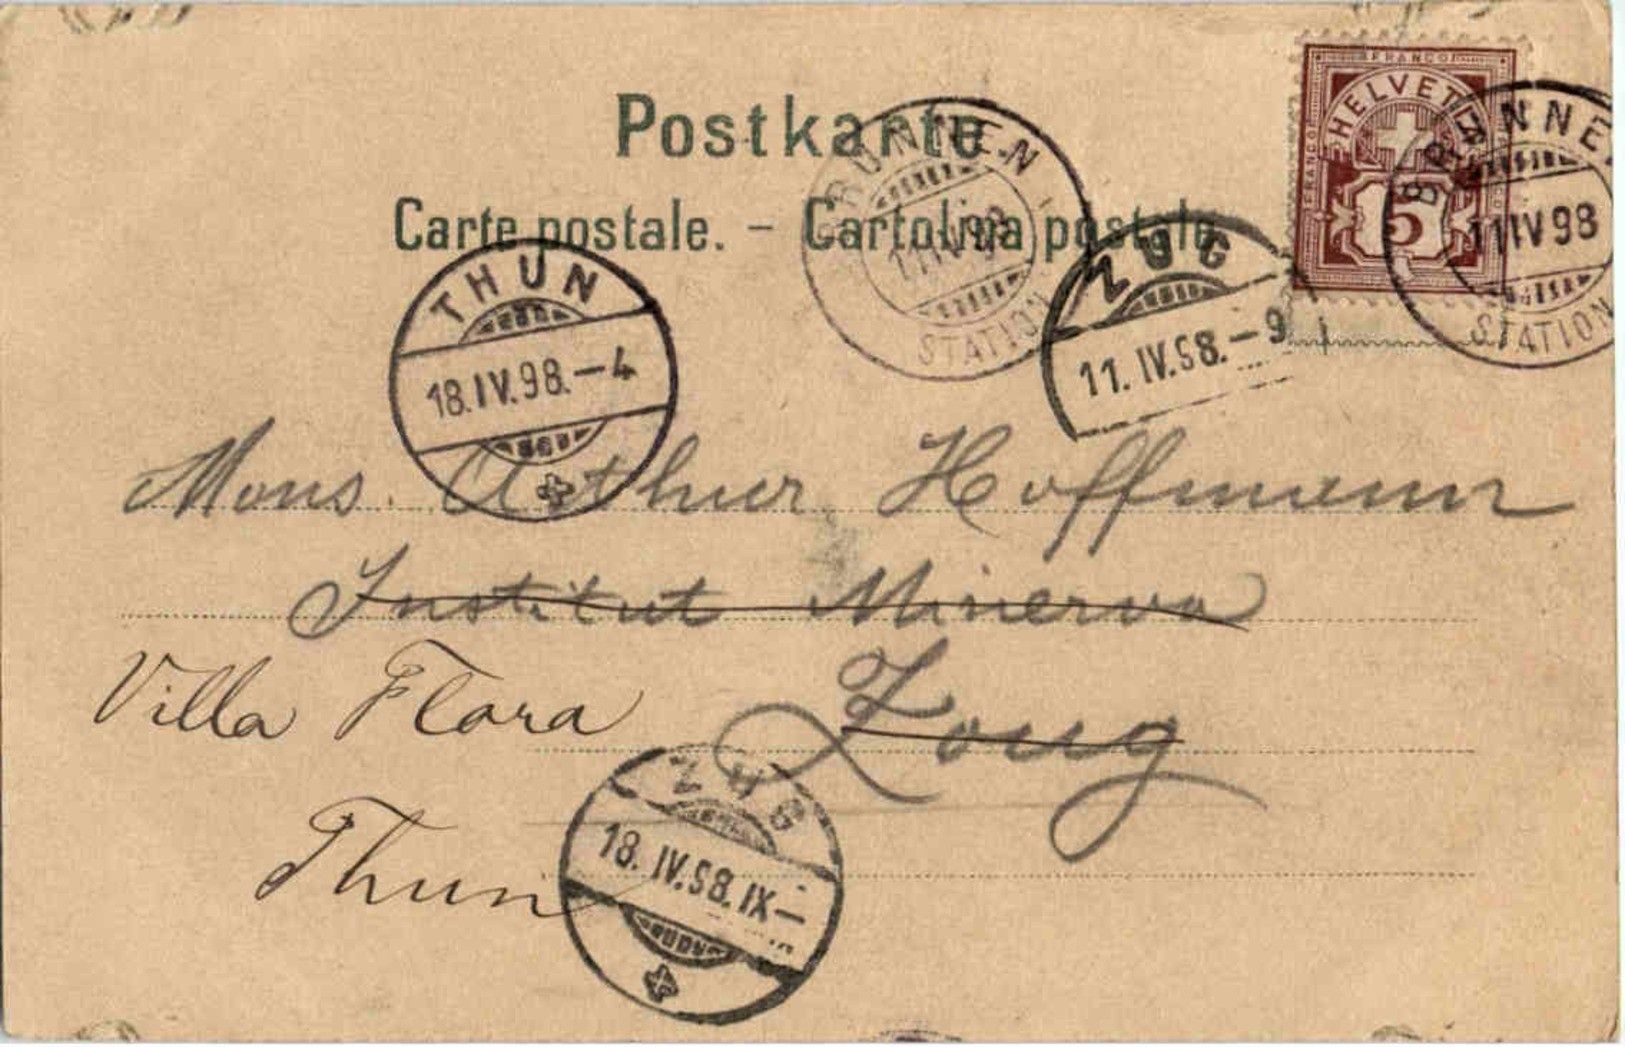 Postkarte.
Carte postale. – Cartolina postale.
FRANCO
FRANCO
HELVETIA
5
BRUNNEN
11 IV 98
STATION
BRUNNEN
11 IV 98
STATION
ZUG
11. IV. 98. – 9
THUN
18. IV. 98. – 4
Mons. Arthur Hoffmann
Institut Minerva
Zoug
Villa Flora
Thun
ZUG
18. IV. 98. IX –